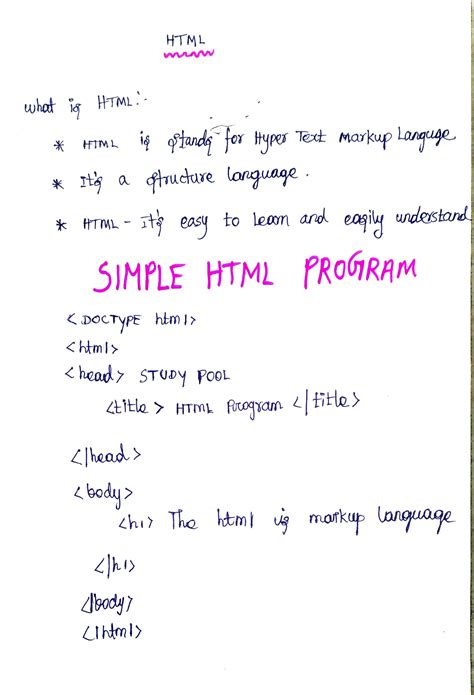 HTML
what is HTML:-
* HTML is stands for Hyper Text markup Languge
* It's a structure language.
* HTML - It's easy to learn and easily understand
SIMPLE HTML PROGRAM
<DOCTYPE html>
<html>
<head> STUDY POOL
<title> HTML Program </title>
</head>
<body>
<h1> The html is markup language
</h1>
</body>
</html>